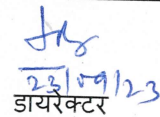 23/09/23
डायरेक्टर